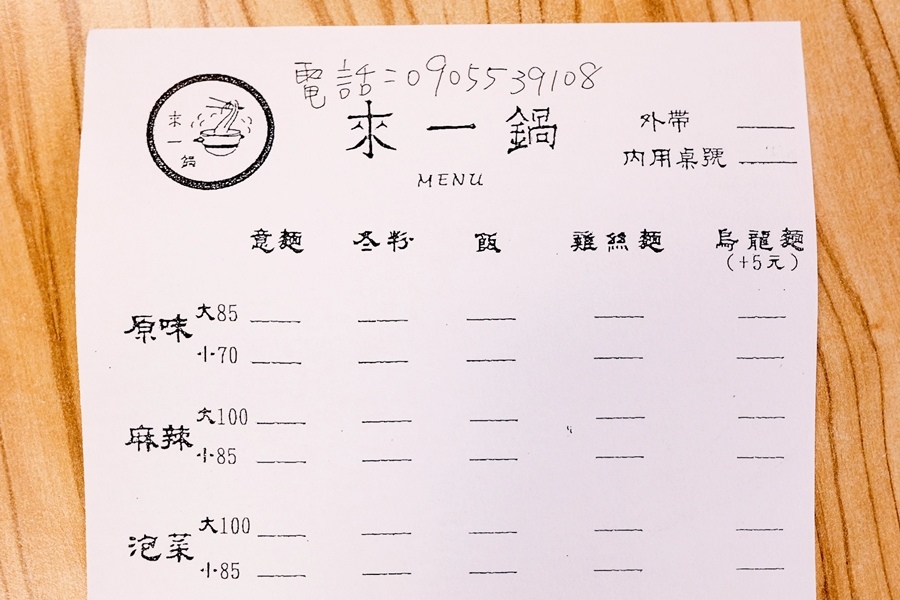 電話:0905539108
來一鍋
來一鍋
MENU
外帶 ____
內用桌號 ____
意麵 冬粉 飯 雞絲麵 烏龍麵
(+5元)
原味 大85 ____ ____ ____ ____ ____
小70 ____ ____ ____ ____ ____
麻辣 大100 ____ ____ ____ ____ ____
小85 ____ ____ ____ ____ ____
泡菜 大100 ____ ____ ____ ____ ____
小85 ____ ____ ____ ____ ____